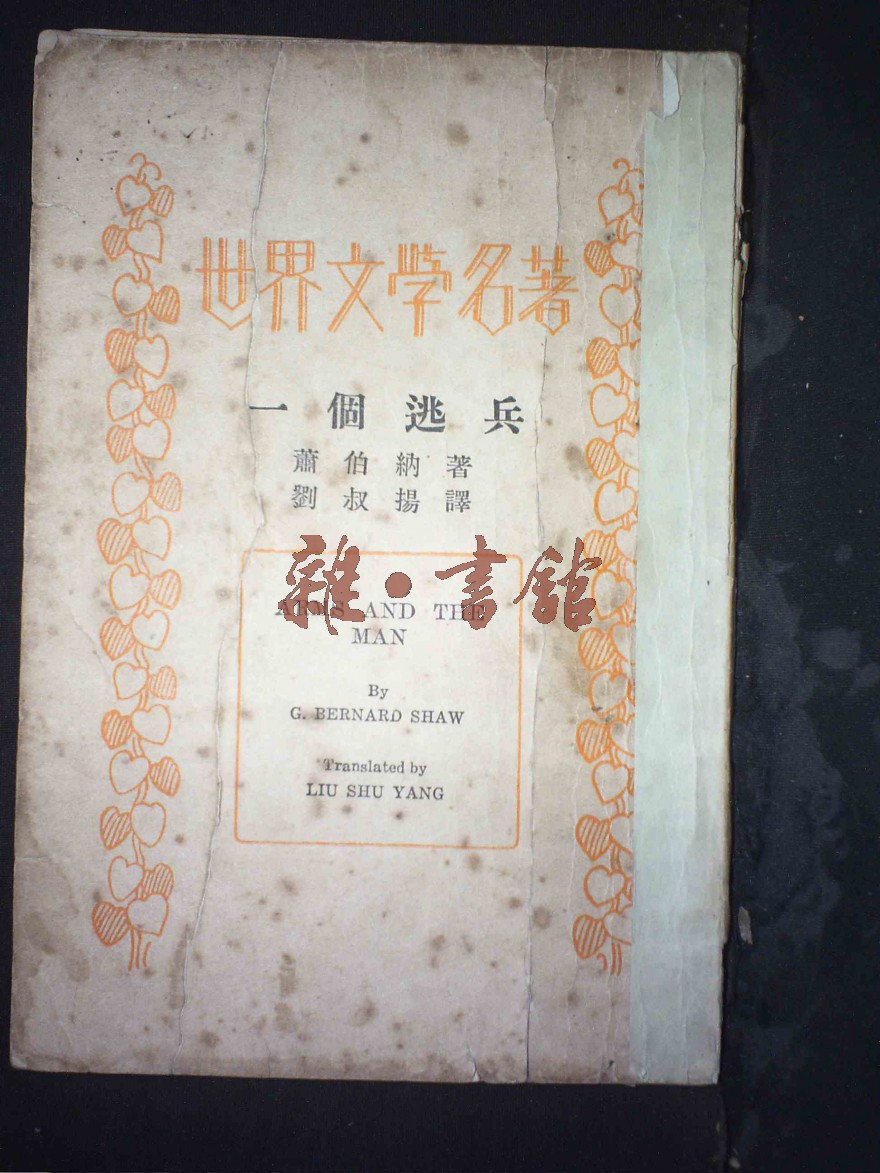 世界文學名著
一個逃兵
蕭伯納著
劉叔揚譯
雜·書館
ARMS AND THE
MAN
By
G. BERNARD SHAW
Translated by
LIU SHU YANG